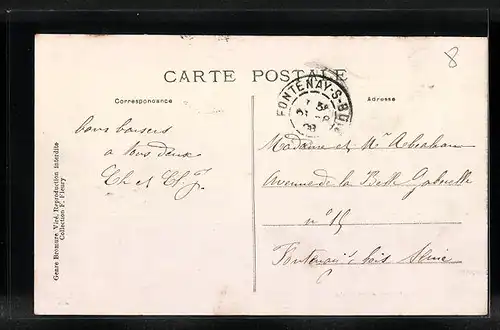 8
CARTE POSTALE
FONTENAY-S-BOIS
08
Correspondance
Adresse
bons baisers
à tous deux
Ch et
Madame et Mr Abraham
Avenue de la Belle Gabrielle
n° 15
Fontenay s/ bois Seine
Genre Bromure, Viré, Reproduction interdite
Collection F. Fleury